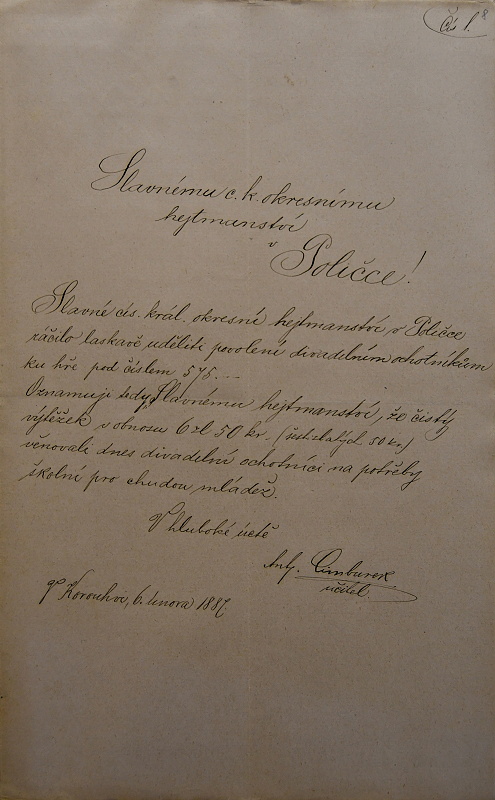 čís 1. 8
Slavnému c. k. okresnímu
hejtmanství
v
Poličce!
Slavné cís. král. okresní hejtmanství v Poličce
ráčilo laskavě uděliti povolení divadelním ochotníkům
ku hře pod číslem 575.—
Oznamuji tedy Slavnému hejtmanství, že čistý
výtěžek v obnosu 6 zl 50 kr. (šest zlatých 50 kr.)
věnovali dnes divadelní ochotníci na potřeby
školní pro chudou mládež.
V hluboké úctě
Ant. Cimburek
učitel.
V Korouhvi, 6. února 1887.